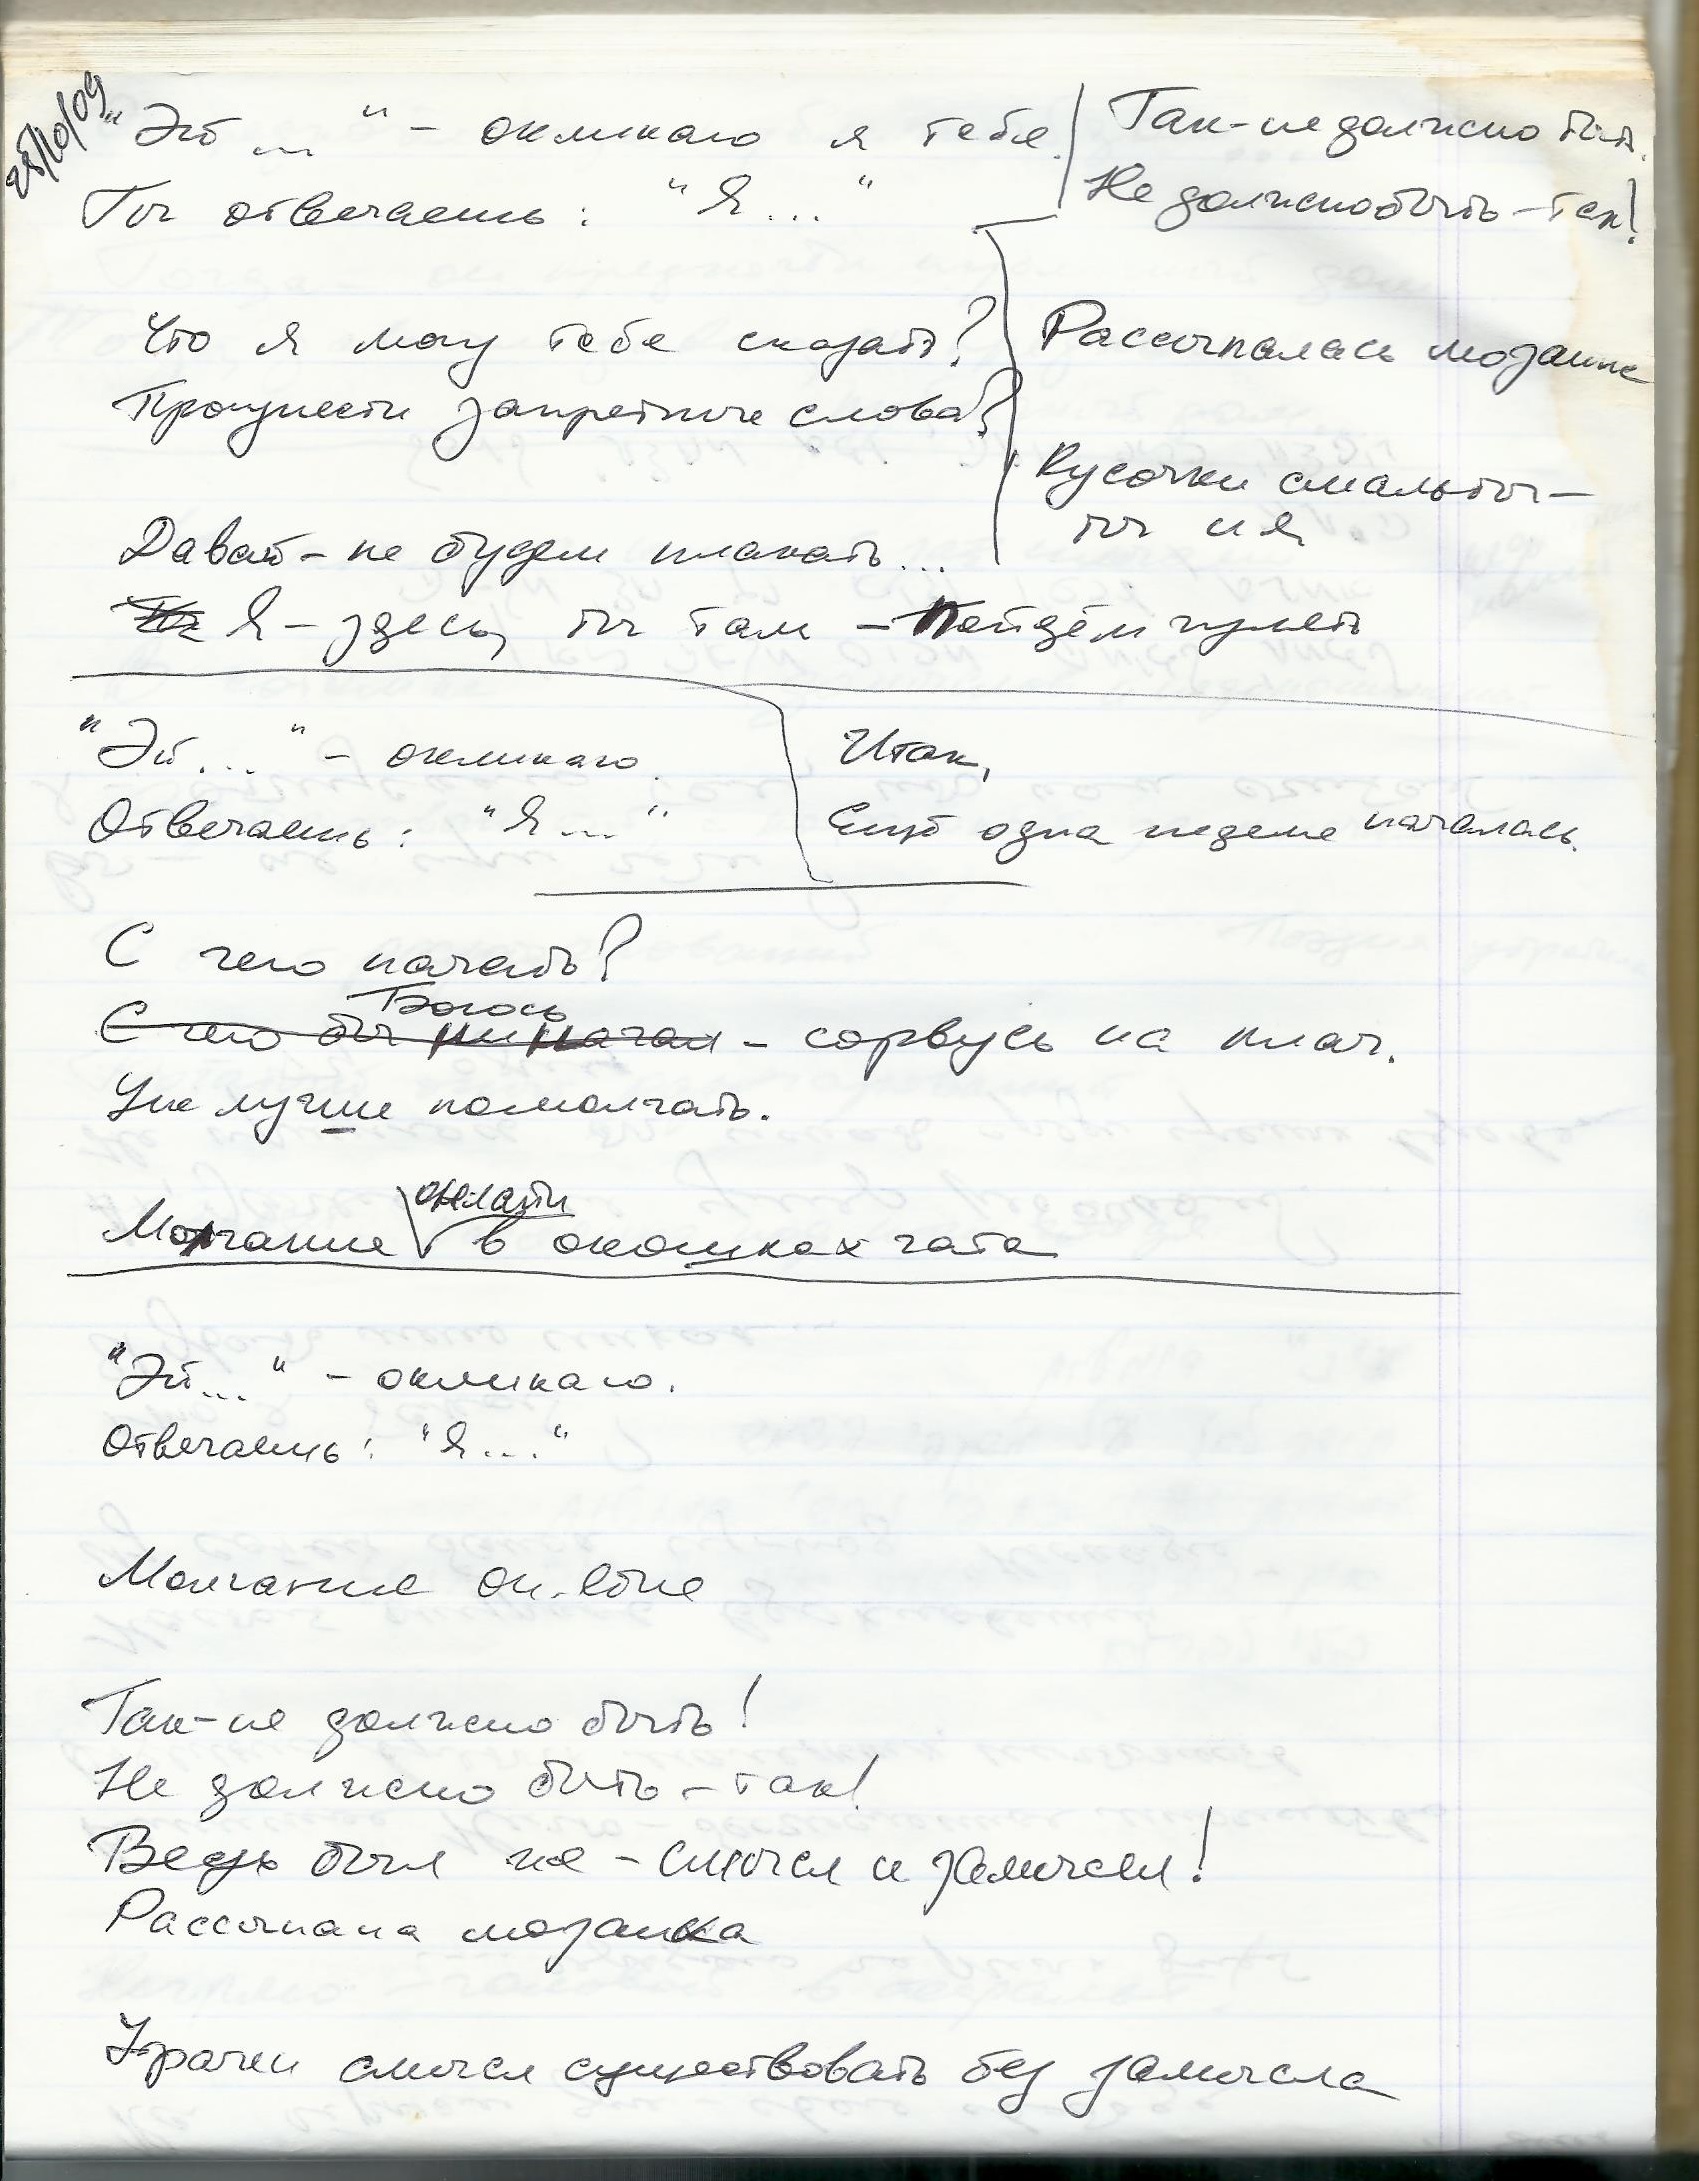 25/10/09
"Эй ... " - окликаю я тебя.
Ты отвечаешь: "Я..."
Так - не должно быть.
Не должно быть - так!
Что я могу тебе сказать?
Произнести запретные слова?
Рассыпалась мозаика
Кусочки смальты -
ты и я
Давай - не будем плакать...
Я - здесь, ты там - пойдём гулять
"Эй..." - окликаю.
Отвечаешь: "Я..."
Итак,
Ещё одна неделя началась.
С чего начать?
Боюсь
С чего бы ни начал - сорвусь на плач.
Уж лучше помолчать.
онлайн
Молчание в окошках чата
"Эй..." - окликаю.
Отвечаешь: "Я..."
Молчание on-line
Так - не должно быть!
Не должно быть - так!
Ведь был же - смысл и замысел!
Рассыпана мозаика
Утрачен смысл существовать без замысла